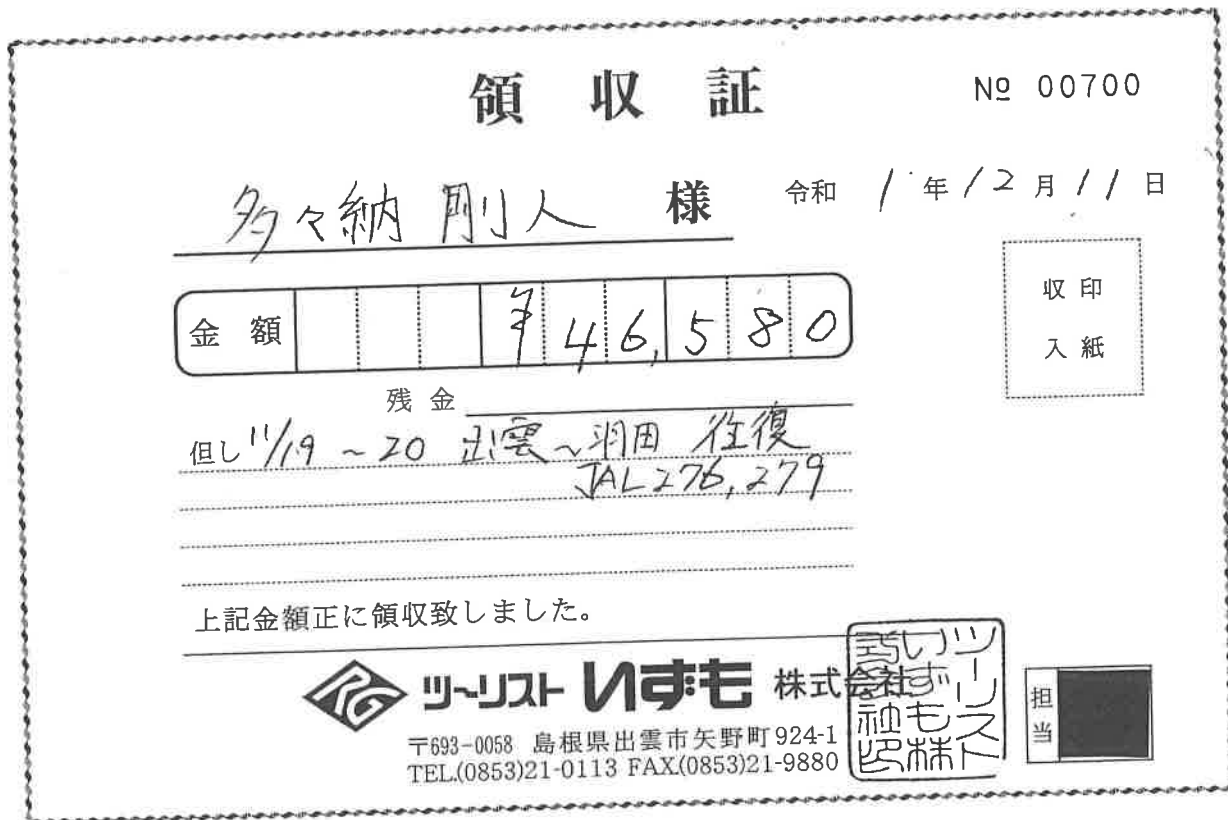 領収証
№ 00700
多々納 剛人 様
令和 1年 12月 11日
収印
入紙
金額 ¥46,580
残金
但し 11/19～20 出雲～羽田 往復
JAL276,279
上記金額正に領収致しました。
RG ツーリストいずも 株式会社
〒693-0058 島根県出雲市矢野町924-1
TEL.(0853)21-0113 FAX.(0853)21-9880
担当
ツーリスト
いずも株
式会社印